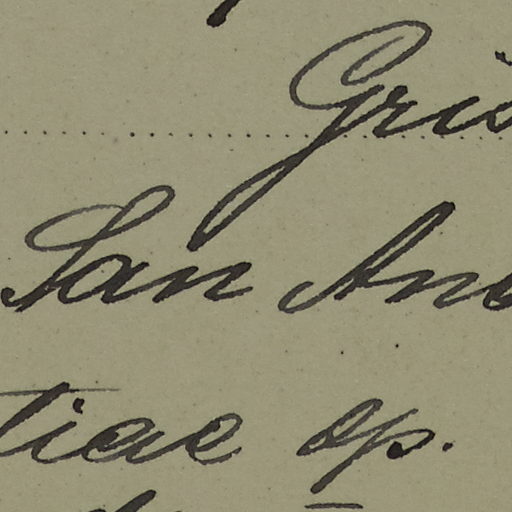 Gris
San And
tiae ep.